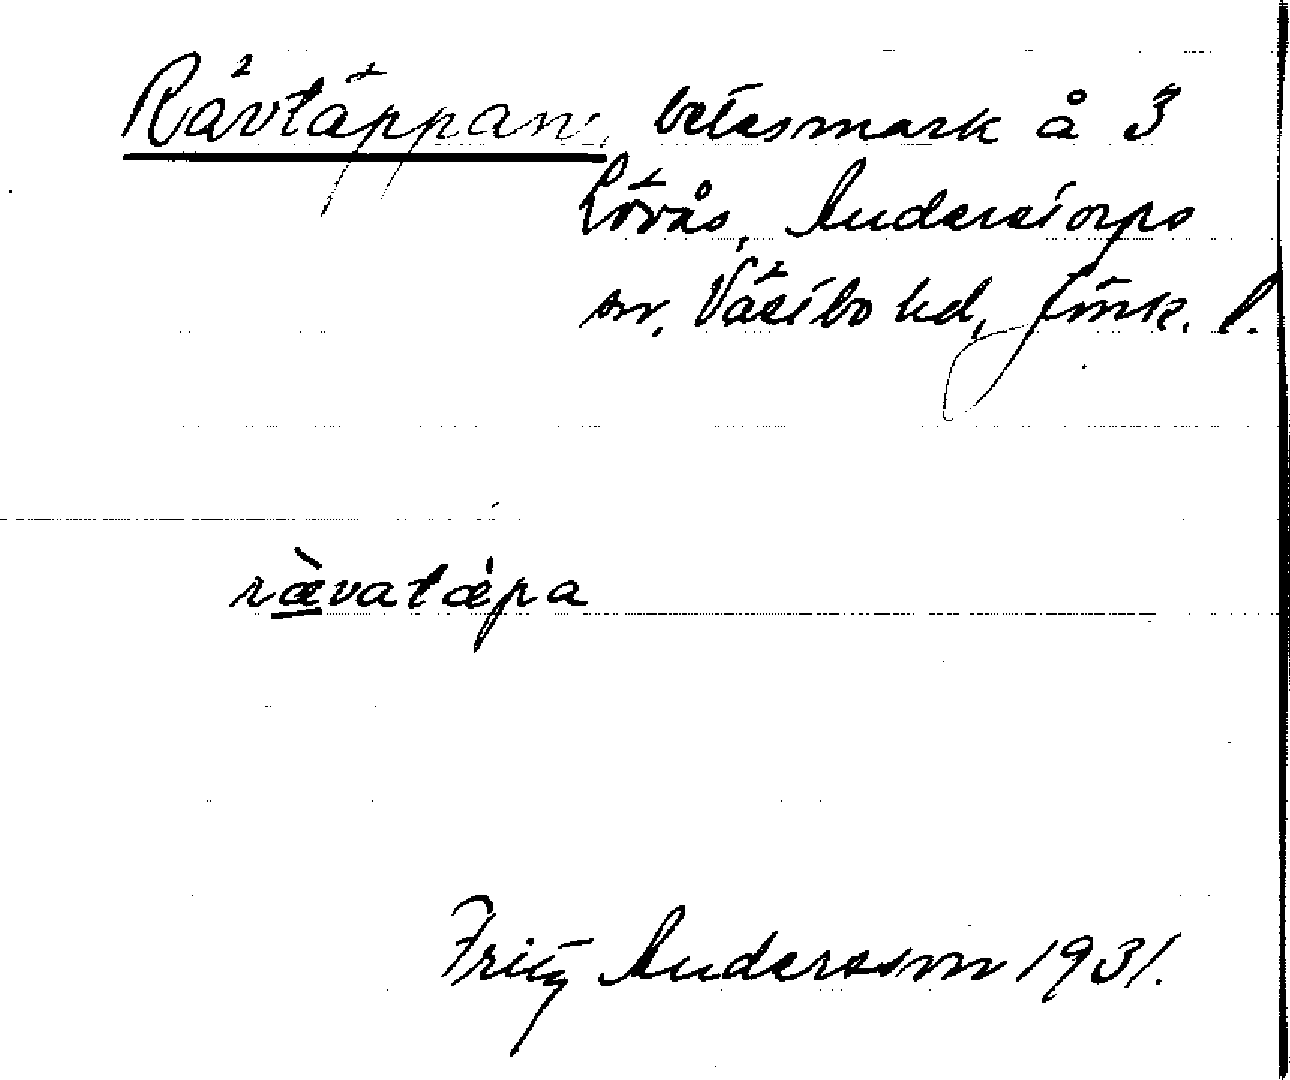 Rävtäppan, betesmark å 3
Lövås, Anderstorps
sn, Västbo hd, Jönk. l.
rævatæpa
Fritz Andersson 1931.